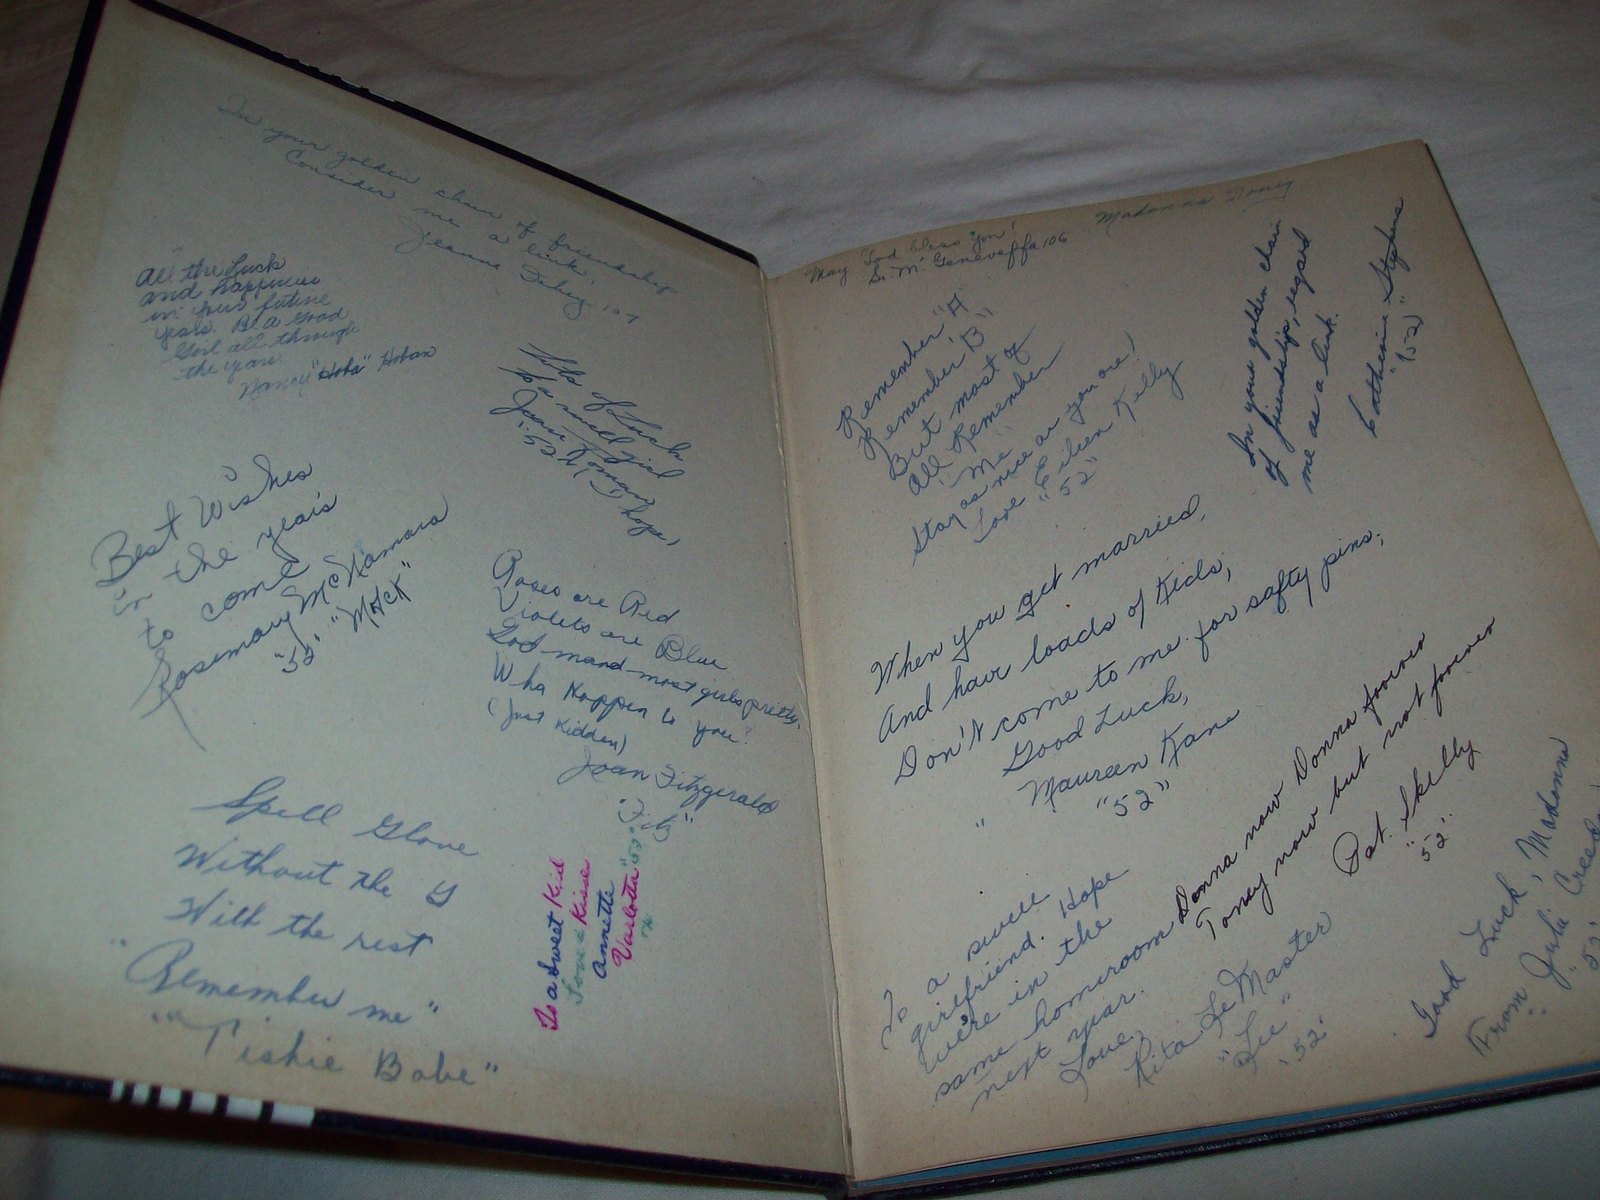 In your golden chain of friendship
Consider me a link
Jeanne Fahey 107
All the Luck
and happiness
in your future
years. Be a Good
Girl all through
the years.
Nancy "Hoba" Hoban
Lots of Luck
to a swell girl
Joan Roman
"52" (I hope)
Best Wishes
in the years
to come
Rosemary McNamara
"52" "Mack"
Roses are Red
Violets are Blue
God mand most girls pretty,
Wha Happen to you?
(Just Kidden)
Joan Fitzgerald
"Fitz"
Spell Glove
Without the G
With the rest
"Remember me"
"Tishie Babe"
To a Sweet Kid
Love & Kisses
Annette
Varlotta "52"
May God bless you!
Sr. M. Geneveffa 106
Madonna Toney
Remember "A"
Remember "B"
But most of
All Remember
"Me"
Stay as nice as you are!
Love Eileen Kelly
"52"
In your golden chain
of friendship, regard
me as a link.
Catherine Stephens
"(52)"
When you get married,
And have loads of Kids,
Don't come to me for safty pins;
Good Luck,
Maureen Kane
"52"
Donna now Donna forever
Toney now but not forever
Pat. Skelly
"52"
To a swell
girlfriend. Hope
we're in the
same homeroom
next year.
Love,
Rita LeMaster
"Lee"
"52"
Good Luck, Madonna
From Julia Creed
"52"